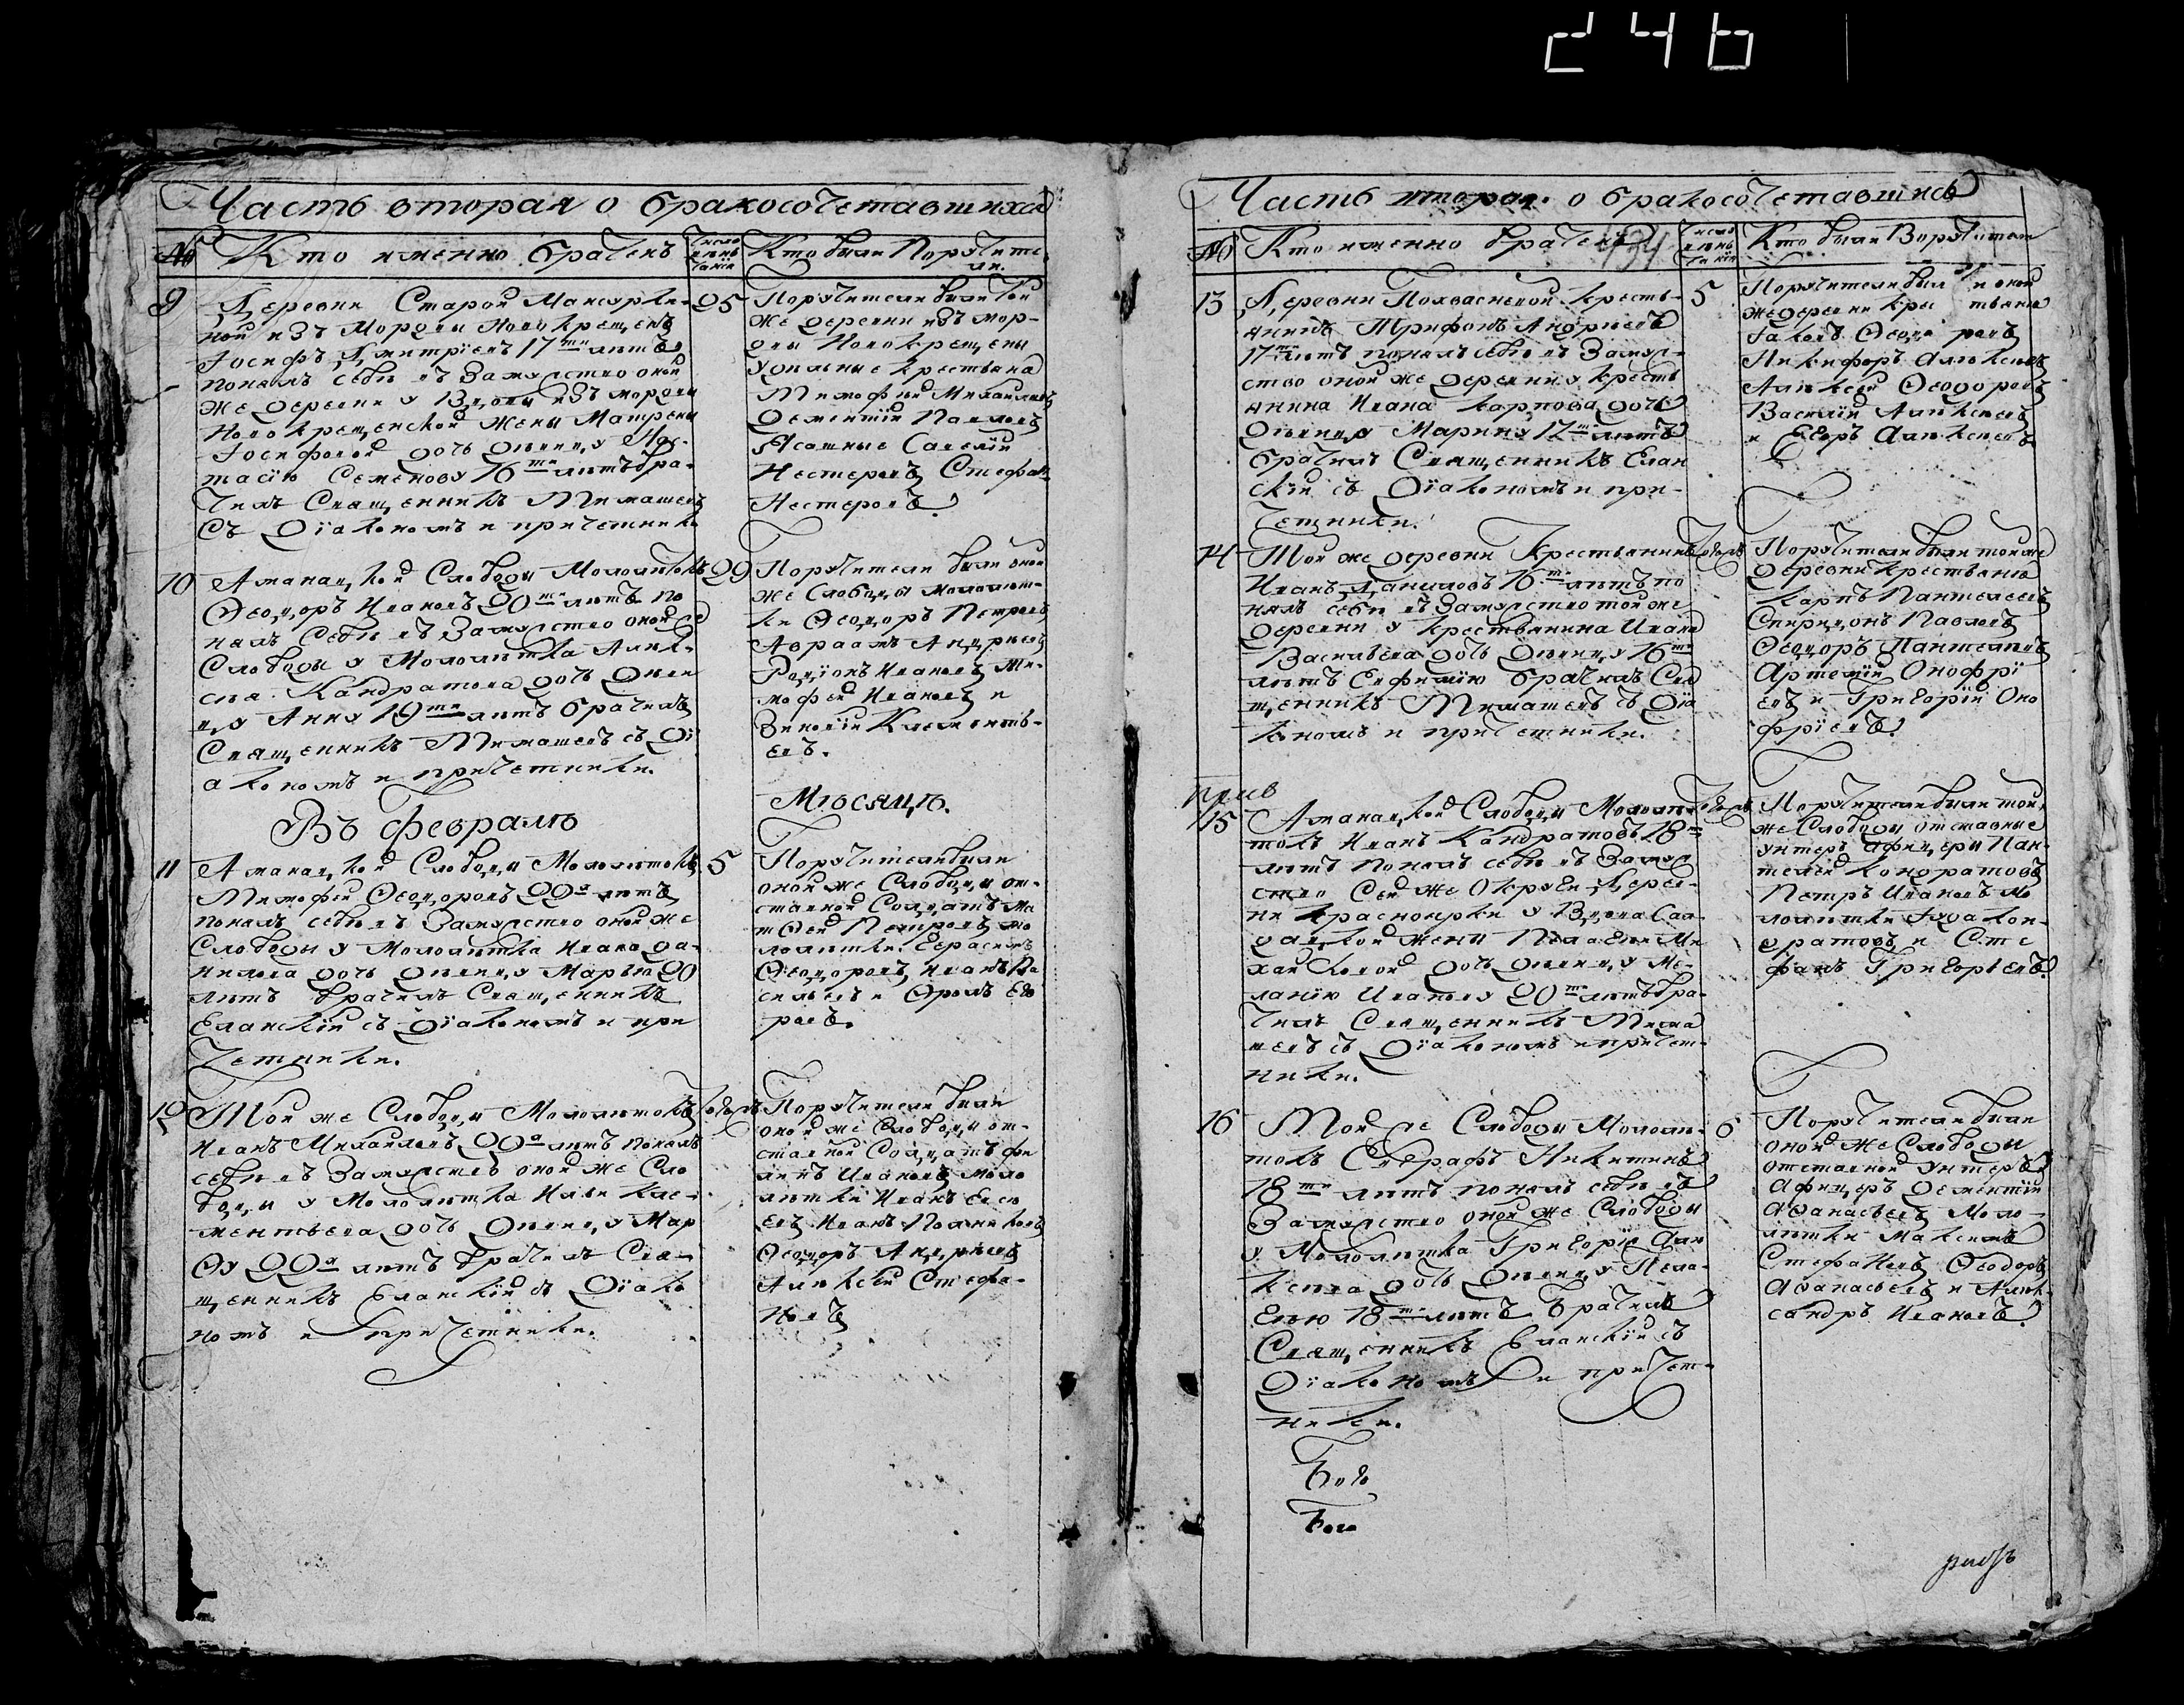 246
Часть вторая о бракосочетавшихся
№
Кто именно браченъ
Число
вѣнъ
чанія
Кто были Поручите
ли.
9
Деревни Старой Мансурки-
ной изъ Мордвы Новокрещенъ
Іосифъ Дмитріевъ 17ти лѣтъ
понялъ себѣ въ Замужство оной
же деревни у Вдовы изъ мордвы
Новокрещенской жены Матрены
Іосифовой дочь Дѣвицу Нас-
тасію Семенову 16ти лѣтъ бра-
чилъ Священникъ Тимашевъ
Съ Діакономъ и причетники
25
Поручители были той
же деревни изъ мор-
двы Новокрещены
удѣльные крестьяна
Тимофей Михайловъ
Дементій Павловъ
Ясашные Савелій
Нестеровъ Стефанъ
Нестеровъ
10
Аманацкой Слободы Мололѣтокъ
Ѳеодоръ Ивановъ 20ти лѣтъ по
нялъ Себѣ въ Замужство оной
Слободы у Мололѣтка Алек-
сѣя Кандратова дочь Дѣви
цу Анну 19ти лѣтъ брачилъ
Священникъ Тимашевъ съ Ді
акономъ и причетники.
29
Поручители были оной
же Слободы мололѣт-
ки Ѳеодоръ Петровъ
Авраамъ Андреевъ
Родіонъ Ивановъ Ти-
мофей Ивановъ и
Зиновій Клементь-
евъ.
Въ февралѣ
Мѣсяцѣ.
11
Аманацкой Слободы Мололѣтокъ
Тимофей Ѳеодоровъ 22а лѣтъ
понялъ себѣ въ Замужство оной же
Слободы у Мололѣтка Ивана Да-
нилова дочь Дѣвицу Марью 20
лѣтъ брачилъ Священникъ
Еланскій съ Діакономъ и при
четники.
5
Поручители были
оной же Слободы от-
ставной Солдатъ Ма
тѳей Петровъ мо
лолѣтки Герасимъ
Ѳеодоровъ, Иванъ Ва
сильевъ и Ѳролъ Его
ровъ.
12
Той же Слободы Мололѣтокъ
Иванъ Михайловъ 22а лѣтъ понялъ
себѣ въ Замужство оной же Сло
боды у Мололѣтка Ильи Кле-
ментьева дочь Дѣвицу Мар
ѳу 22а лѣтъ брачилъ Свя-
щенникъ Еланскій съ Діако
номъ и причетники.
Тогожъ
Поручители были
оной же Слободы от-
ставной Солдатъ Фи
липъ Ивановъ моло
лѣтки Иванъ Евсѣ
евъ Иванъ
Ѳеодоръ Андреевъ
Алексей Стефа-
новъ
Часть вторая о бракосочетавшихся
434
№
Кто именно браченъ
Число
вѣнъ
чанія
Кто были Поручители
13
Деревни Похвасневой кресть-
янинъ Трифонъ Андреевъ
17ти лѣтъ понялъ себѣ въ Замуж-
ство оной же деревни у кресть
янина Ивана Карпова дочь
Дѣвицу Марину 17ти лѣтъ
брачилъ Священникъ Елан
скій съ Діакономъ и при-
четники.
5
Поручители были оной
же деревни крестьяна
Іаковъ Ѳеодоровъ
Никифоръ Алексеевъ
Алексей Ѳеодоровъ
Василій Алексеевъ
и Егоръ Алексеевъ
14
Той же деревни Крестьянинъ
Иванъ Даниловъ 16ти лѣтъ по
нялъ себѣ въ Замужство той же
деревни у Крестьянина Ивана
Васильева дочь Дѣвицу 16ти
лѣтъ Евфимію брачилъ Свя
щенникъ Тимашевъ съ Діа
кономъ и причетники.
Тогожъ
Поручители были той же
деревни крестьяна
Карпъ Пантелеевъ
Спиридонъ Павловъ
Ѳеодоръ Пантелеевъ
Артемій Онофрі
евъ и Григорій Оно
фріевъ
15
Аманацкой Слободы Мололѣ-
токъ Иванъ Кандратовъ 18ти
лѣтъ понялъ себѣ въ Замуж
ство Сей же Округи Дерев-
ни Красноярки у Вдовы Сол-
датской жены Пелагеи Ми
хайловой дочь Дѣвицу Ме-
ланію Иванову 20ти лѣтъ бра-
чилъ Священникъ Тима
шевъ съ Діакономъ и причет-
ники.
Тогожъ
Поручители были той
же Слободы отставные
унтеръ афицеры Пан-
телей Кондратовъ
Петръ Ивановъ мо
лолѣтки Іуда Кон-
дратовъ и Сте
фанъ Григорьевъ
16
Той же Слободы Мололѣ-
токъ Евграфъ Никитинъ
18ти лѣтъ понялъ себѣ въ
Замужство оной же Слободы
у Мололѣтка Григорія Але
ксѣева дочь Дѣвицу Пела-
гею 18ти лѣтъ брачилъ
Священникъ Еланскій съ
Діакономъ и причет-
ники.
6
Поручители были
оной же Слободы
отставной унтеръ
афицеръ Дементій
Аѳанасьевъ Моло-
лѣтки Максимъ
Стефановъ Ѳеодоръ
Аѳанасьевъ и Алек-
сандръ Ивановъ